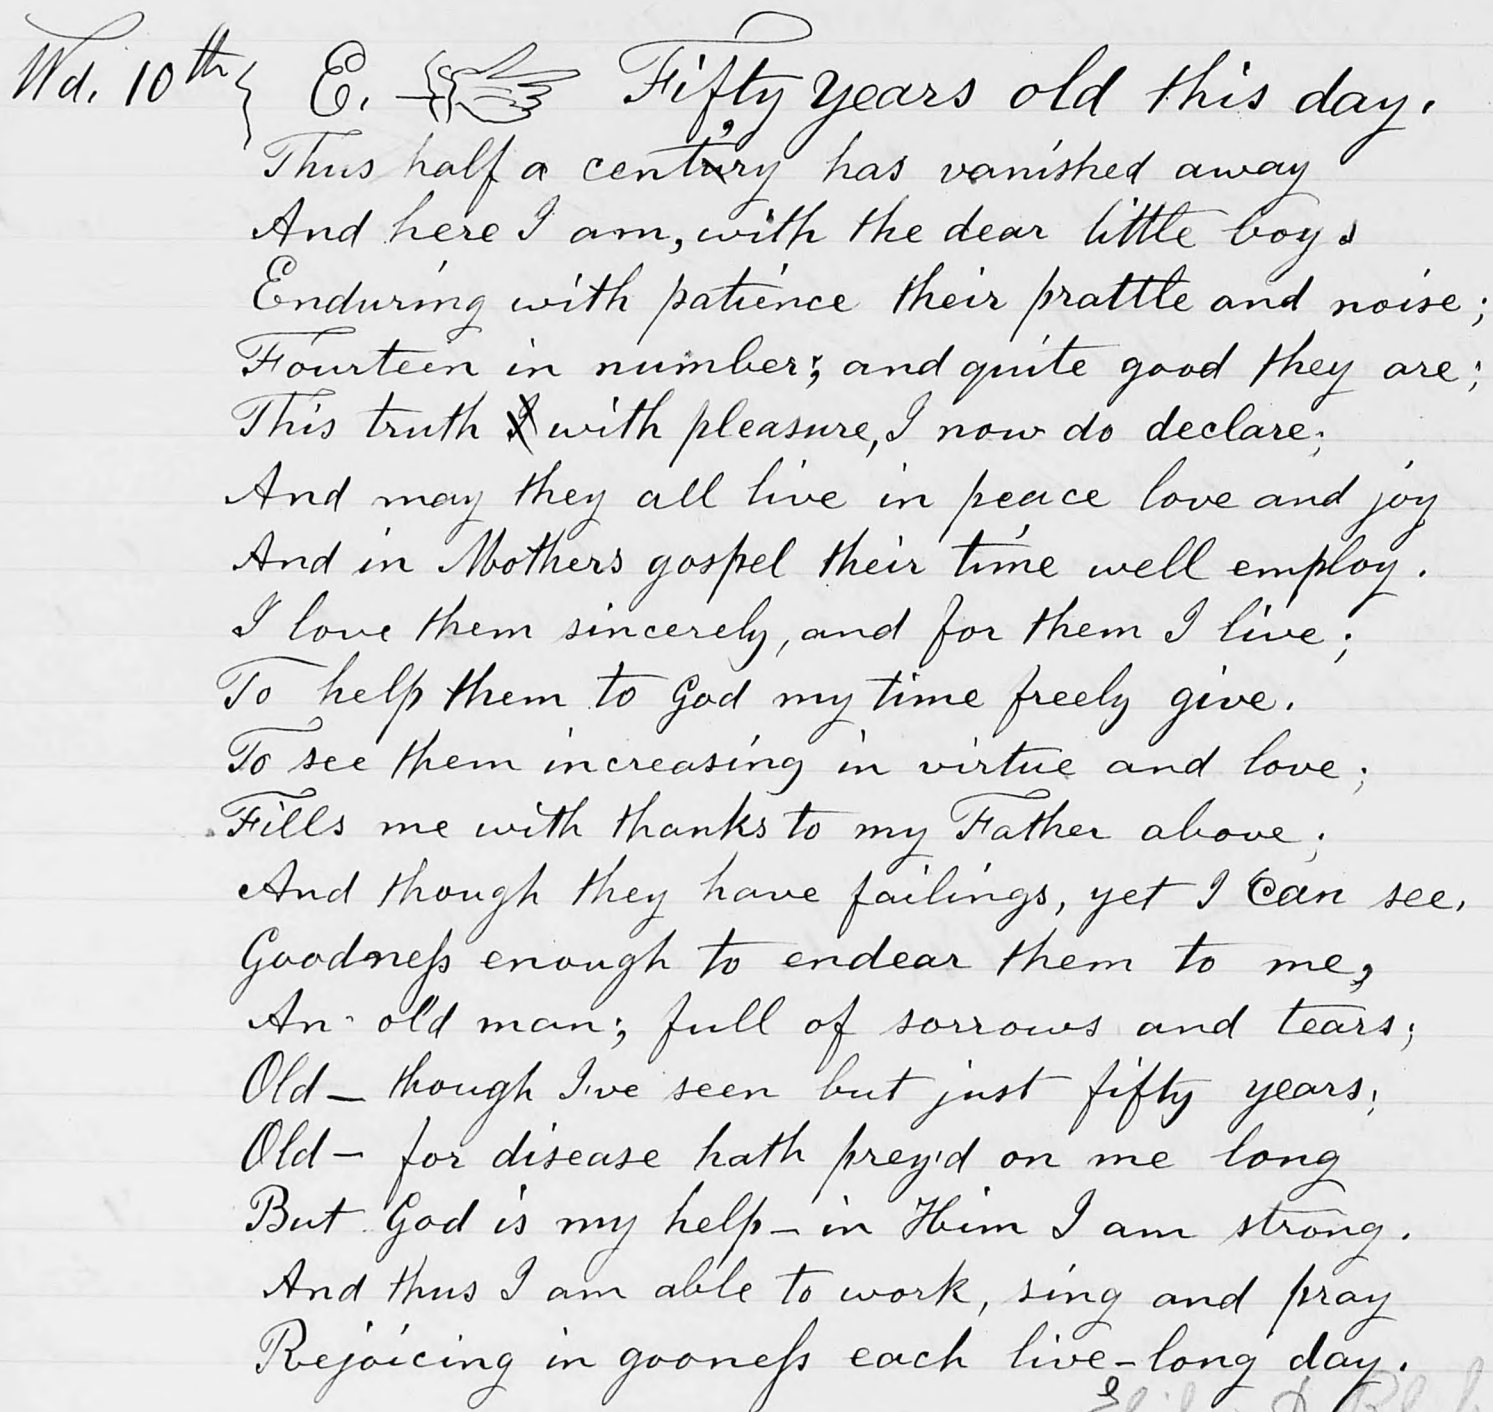 Wd. 10th } E. Fifty years old this day.
Thus half a cent'ry has vanished away
And here I am, with the dear little boys
Enduring with patience their prattle and noise;
Fourteen in number; and quite good they are;
This truth I with pleasure, I now do declare;
And may they all live in peace love and joy
And in Mothers gospel their time well employ.
I love them sincerely, and for them I live;
To help them to God my time freely give.
To see them increasing in virtue and love;
Fills me with thanks to my Father above;
And though they have failings, yet I can see,
Goodneſs enough to endear them to me,
An old man; full of sorrows and tears;
Old – though I've seen but just fifty years;
Old – for disease hath prey'd on me long
But God is my help – in Him I am strong.
And thus I am able to work, sing and pray
Rejoicing in gooneſs each live-long day.